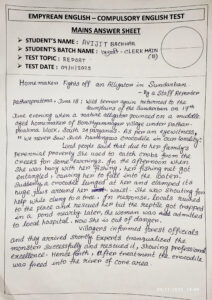 EMPYREAN ENGLISH – COMPULSORY ENGLISH TEST
MAINS ANSWER SHEET
➢ STUDENT'S NAME : AVIJIT BACHHAR
➢ STUDENT'S BATCH NAME : CLERK MAIN
➢ TEST TOPIC : REPORT
➢ TEST DATE :
Home maker fights off an Alligator in Sundarban
- By a Staff Reporter
Patharpratima, June 18 : Wild terror again returned to the
of the Sundarban on 17th
June evening when a rabid alligator pounced on a middle
aged home maker of village under Pathar-
pratima block, South 24 parganas. As per an eyewitness,
"I've never seen such humongous crocodile in Sundarban".
Local people said that due to her family's
she used to catch crabs from the
creeks for some earnings. In the afternoon when
she was busy with her fishing, her fishing net got
entangled, causing her to fall into the water.
Suddenly a crocodile lunged at her and clamped its
huge jaws around waist. She was shouting for
help while clung to a tree. In response, locals rushed
to the place and rescued her but the reptile got trapped
in a pond nearby. Later, the woman was admitted
to local hospital. Now she is out of danger.
Villagers informed forest officials
and they arrived shortly. Experts tranquilized the
monster successfully and rescued it, showing professional
excellence. Hence forth, after treatment the crocodile
was freed into the river of core area.